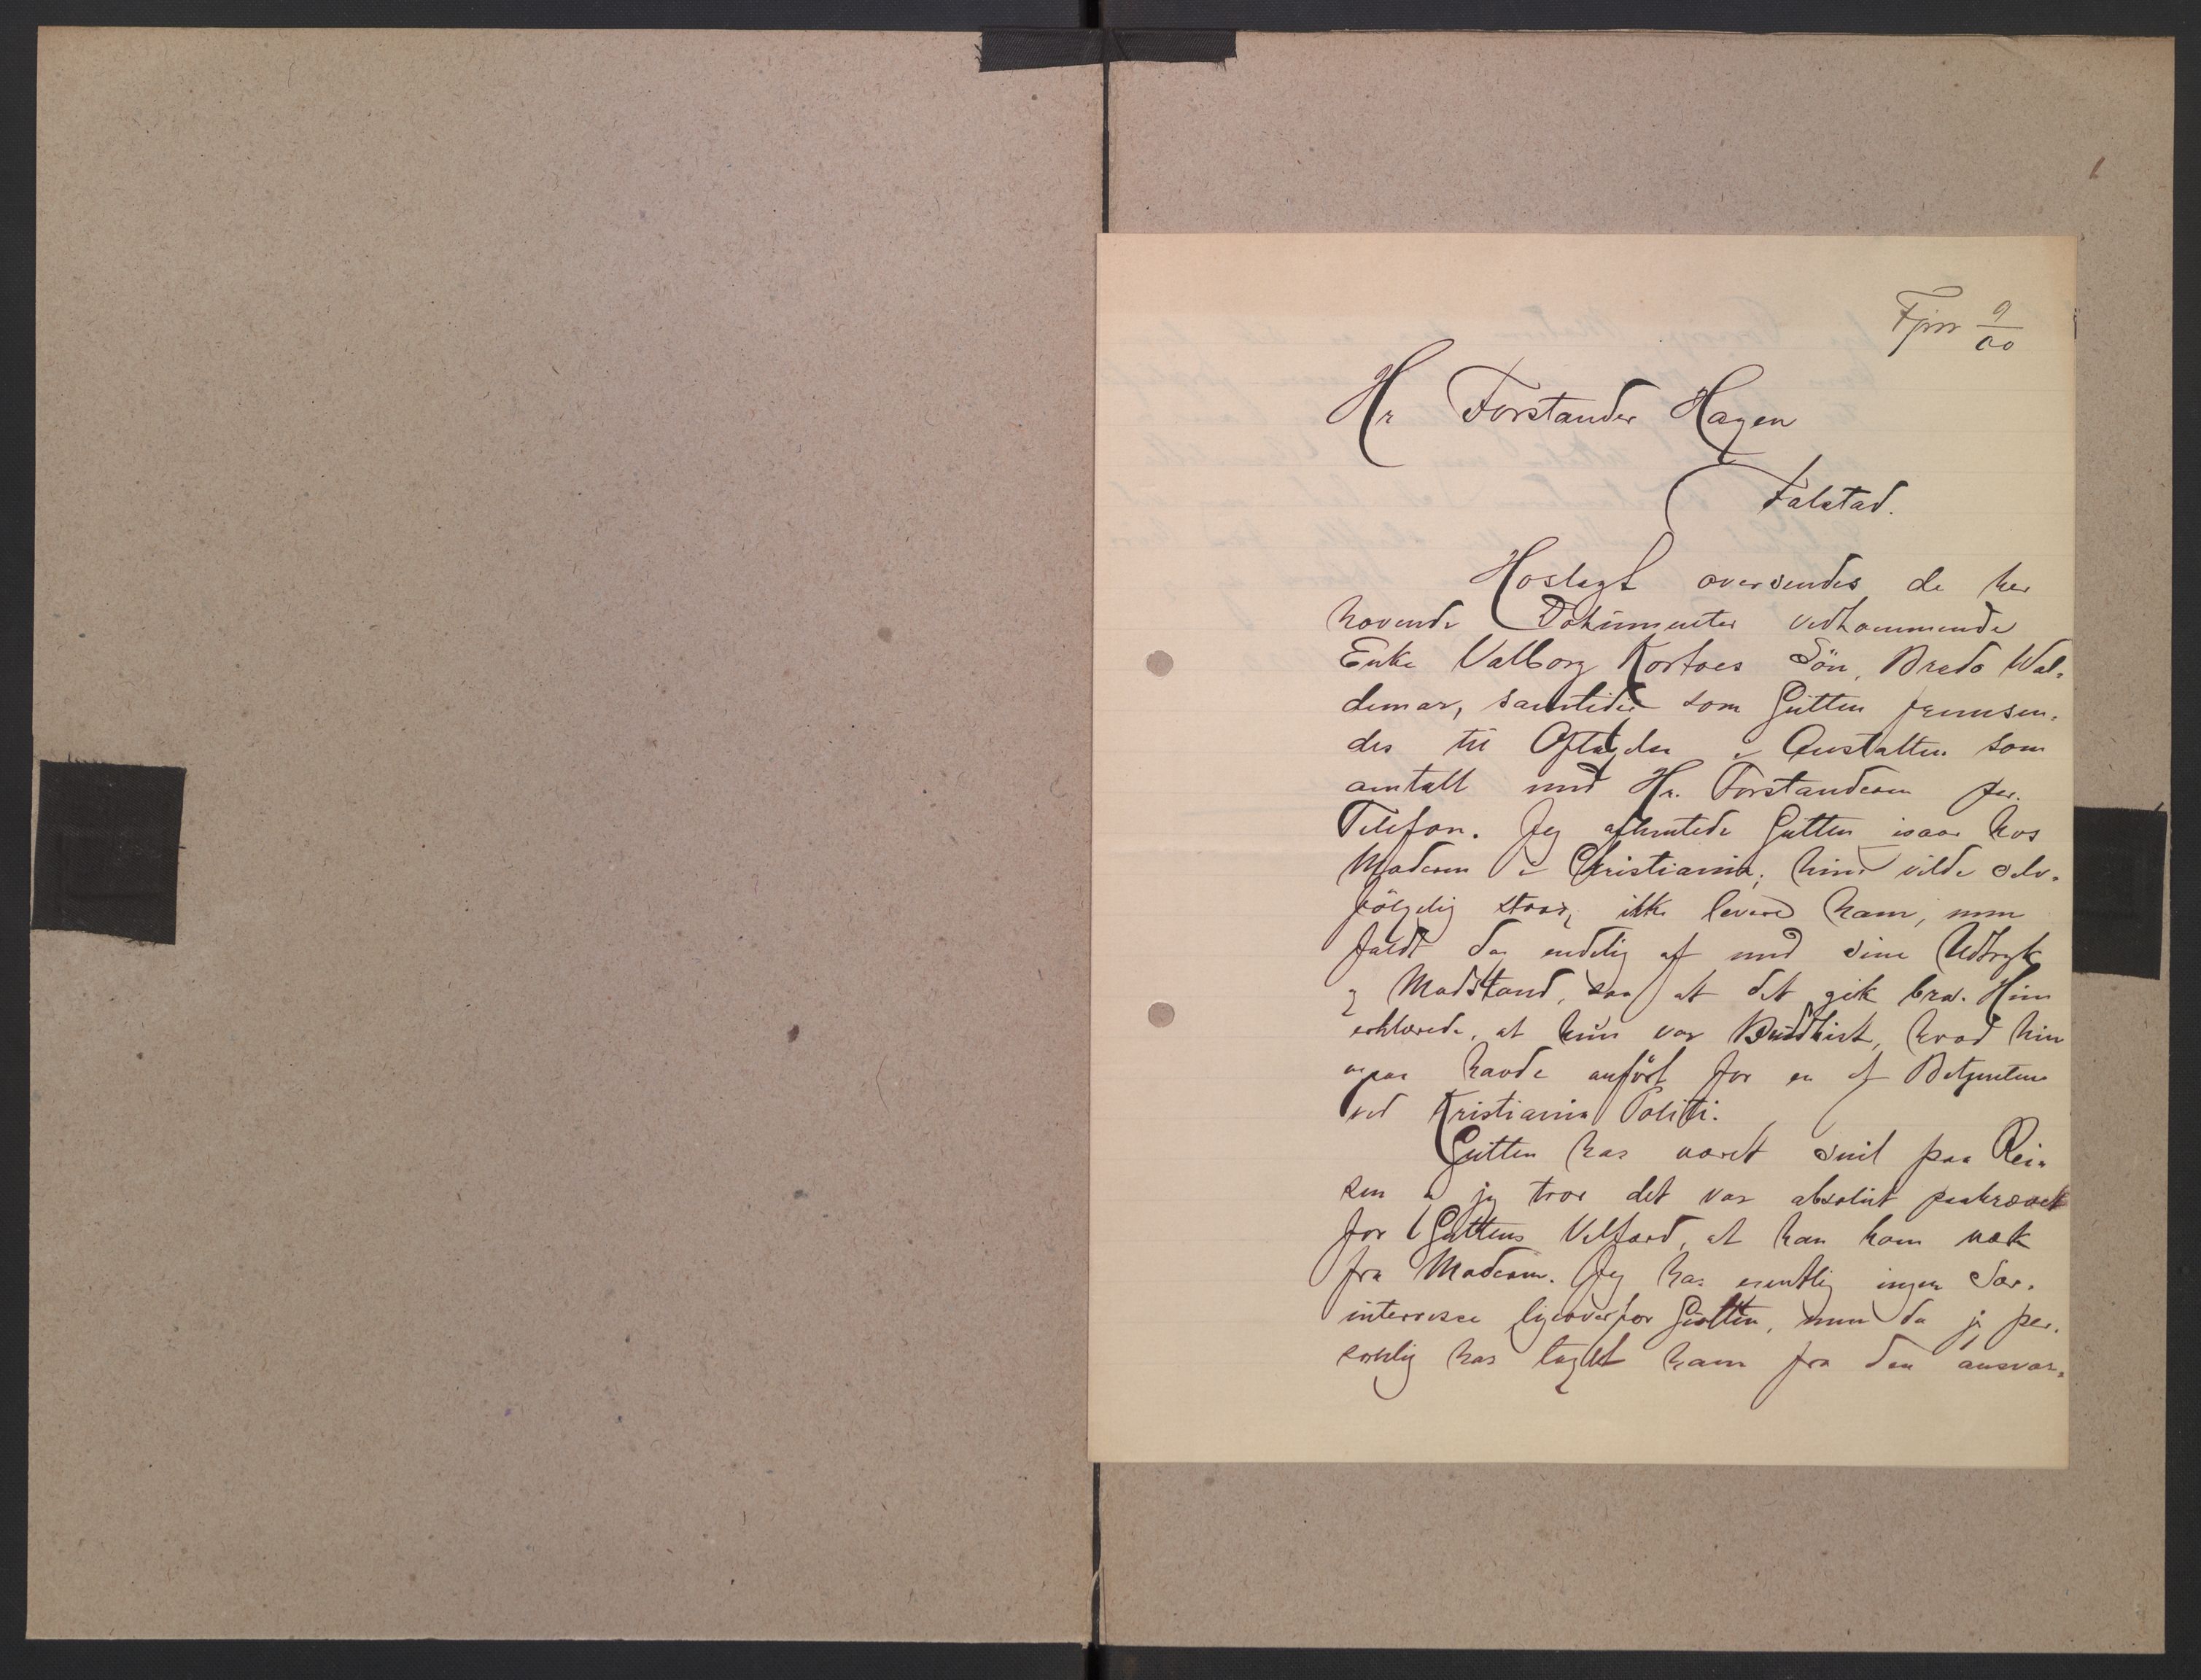 1
9/00
Hr Forstander Hagen
Falstad.
Hoslagt oversendes de her
havende Dokumenter vedkommende
Enke Valborg Kortoes Sön, Bredo Wal-
demar, samtidig som Gutten fremsen-
des til Optagelse i Anstalten som
amtalt med Hr. Forstanderen per.
Telefon. Jeg afhentede Gutten igaar hos
Moderen i Christiania; hun vilde selv-
følgelig strax ikke levere ham, men
faldt dog endelig af med sine Udtryk
og Modstand, saa at det gik bra. Hun
erklærede, at hun var Buddhist, hvad hun
ogsaa havde anført for en af Betjentene
ved Kristiania Politi.
Gutten har været snil paa Rei-
sen og jeg tror det var absolut paakrævet
for Guttens Velfærd, at han kom væk
fra Moderen. Jeg har egentlig ingen Sær-
interesse ligeoverfor Gutten, men da jeg per-
sonlig har taget ham fra den ansvar-